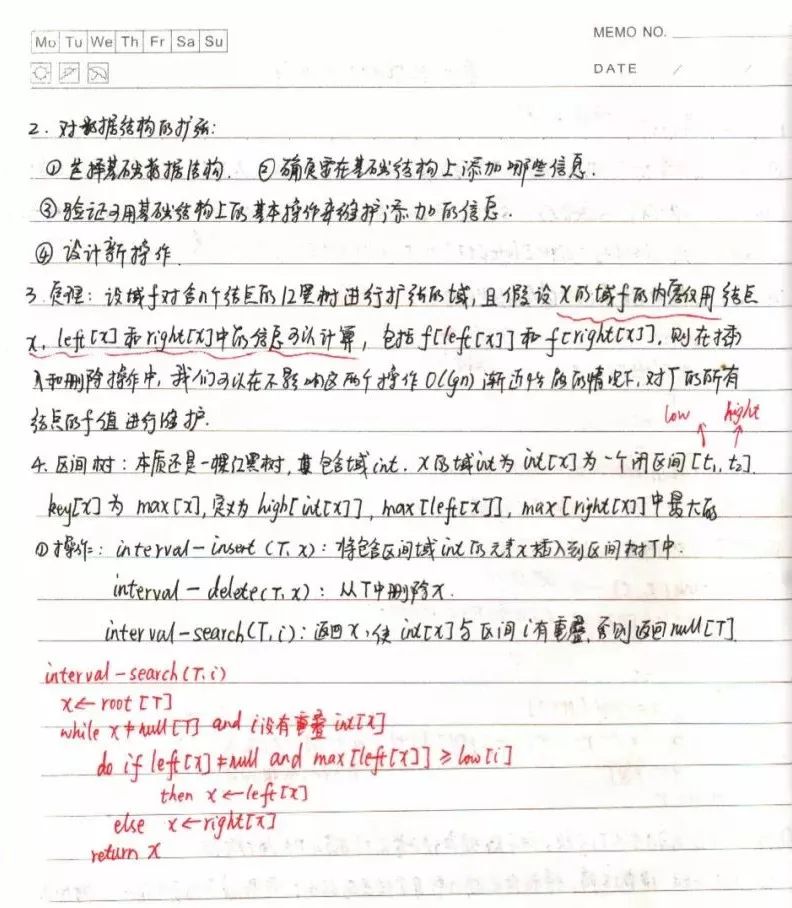 Mo Tu We Th Fr Sa Su
MEMO NO.
DATE / /
2. 对数据结构的扩张:
① 选择基础数据结构. ②确定要在基础结构上添加哪些信息.
③验证可用基础结构上的基本操作来维护添加的信息.
④ 设计新操作
3. 定理: 设域f对含n个结点的红黑树进行扩张的域, 且假设x的域f的内容仅用结点
x, left[x]和right[x]中的信息可以计算, 包括f[left[x]]和f[right[x]], 则在插
入和删除操作中, 我们可以在不影响这两个操作O(lgn)渐近性能的情况下, 对T的所有
结点的f值进行维护.
low hight
4. 区间树: 本质还是一棵红黑树, 其包含域int. x的域int为int[x]为一个闭区间[t₁, t₂].
key[x]为max[x], 定义为high[int[x]], max[left[x]], max[right[x]]中最大的
①操作: interval-insert(T, x): 将包含区间域int的元素x插入到区间树T中.
interval-delete(T, x): 从T中删除x.
interval-search(T, i): 返回x, 使int[x]与区间i有重叠, 否则返回null[T]
interval-search(T, i)
x←root[T]
while x≠null[T] and i没有重叠int[x]
do if left[x]≠null and max[left[x]]≥low[i]
then x←left[x]
else x←right[x]
return x